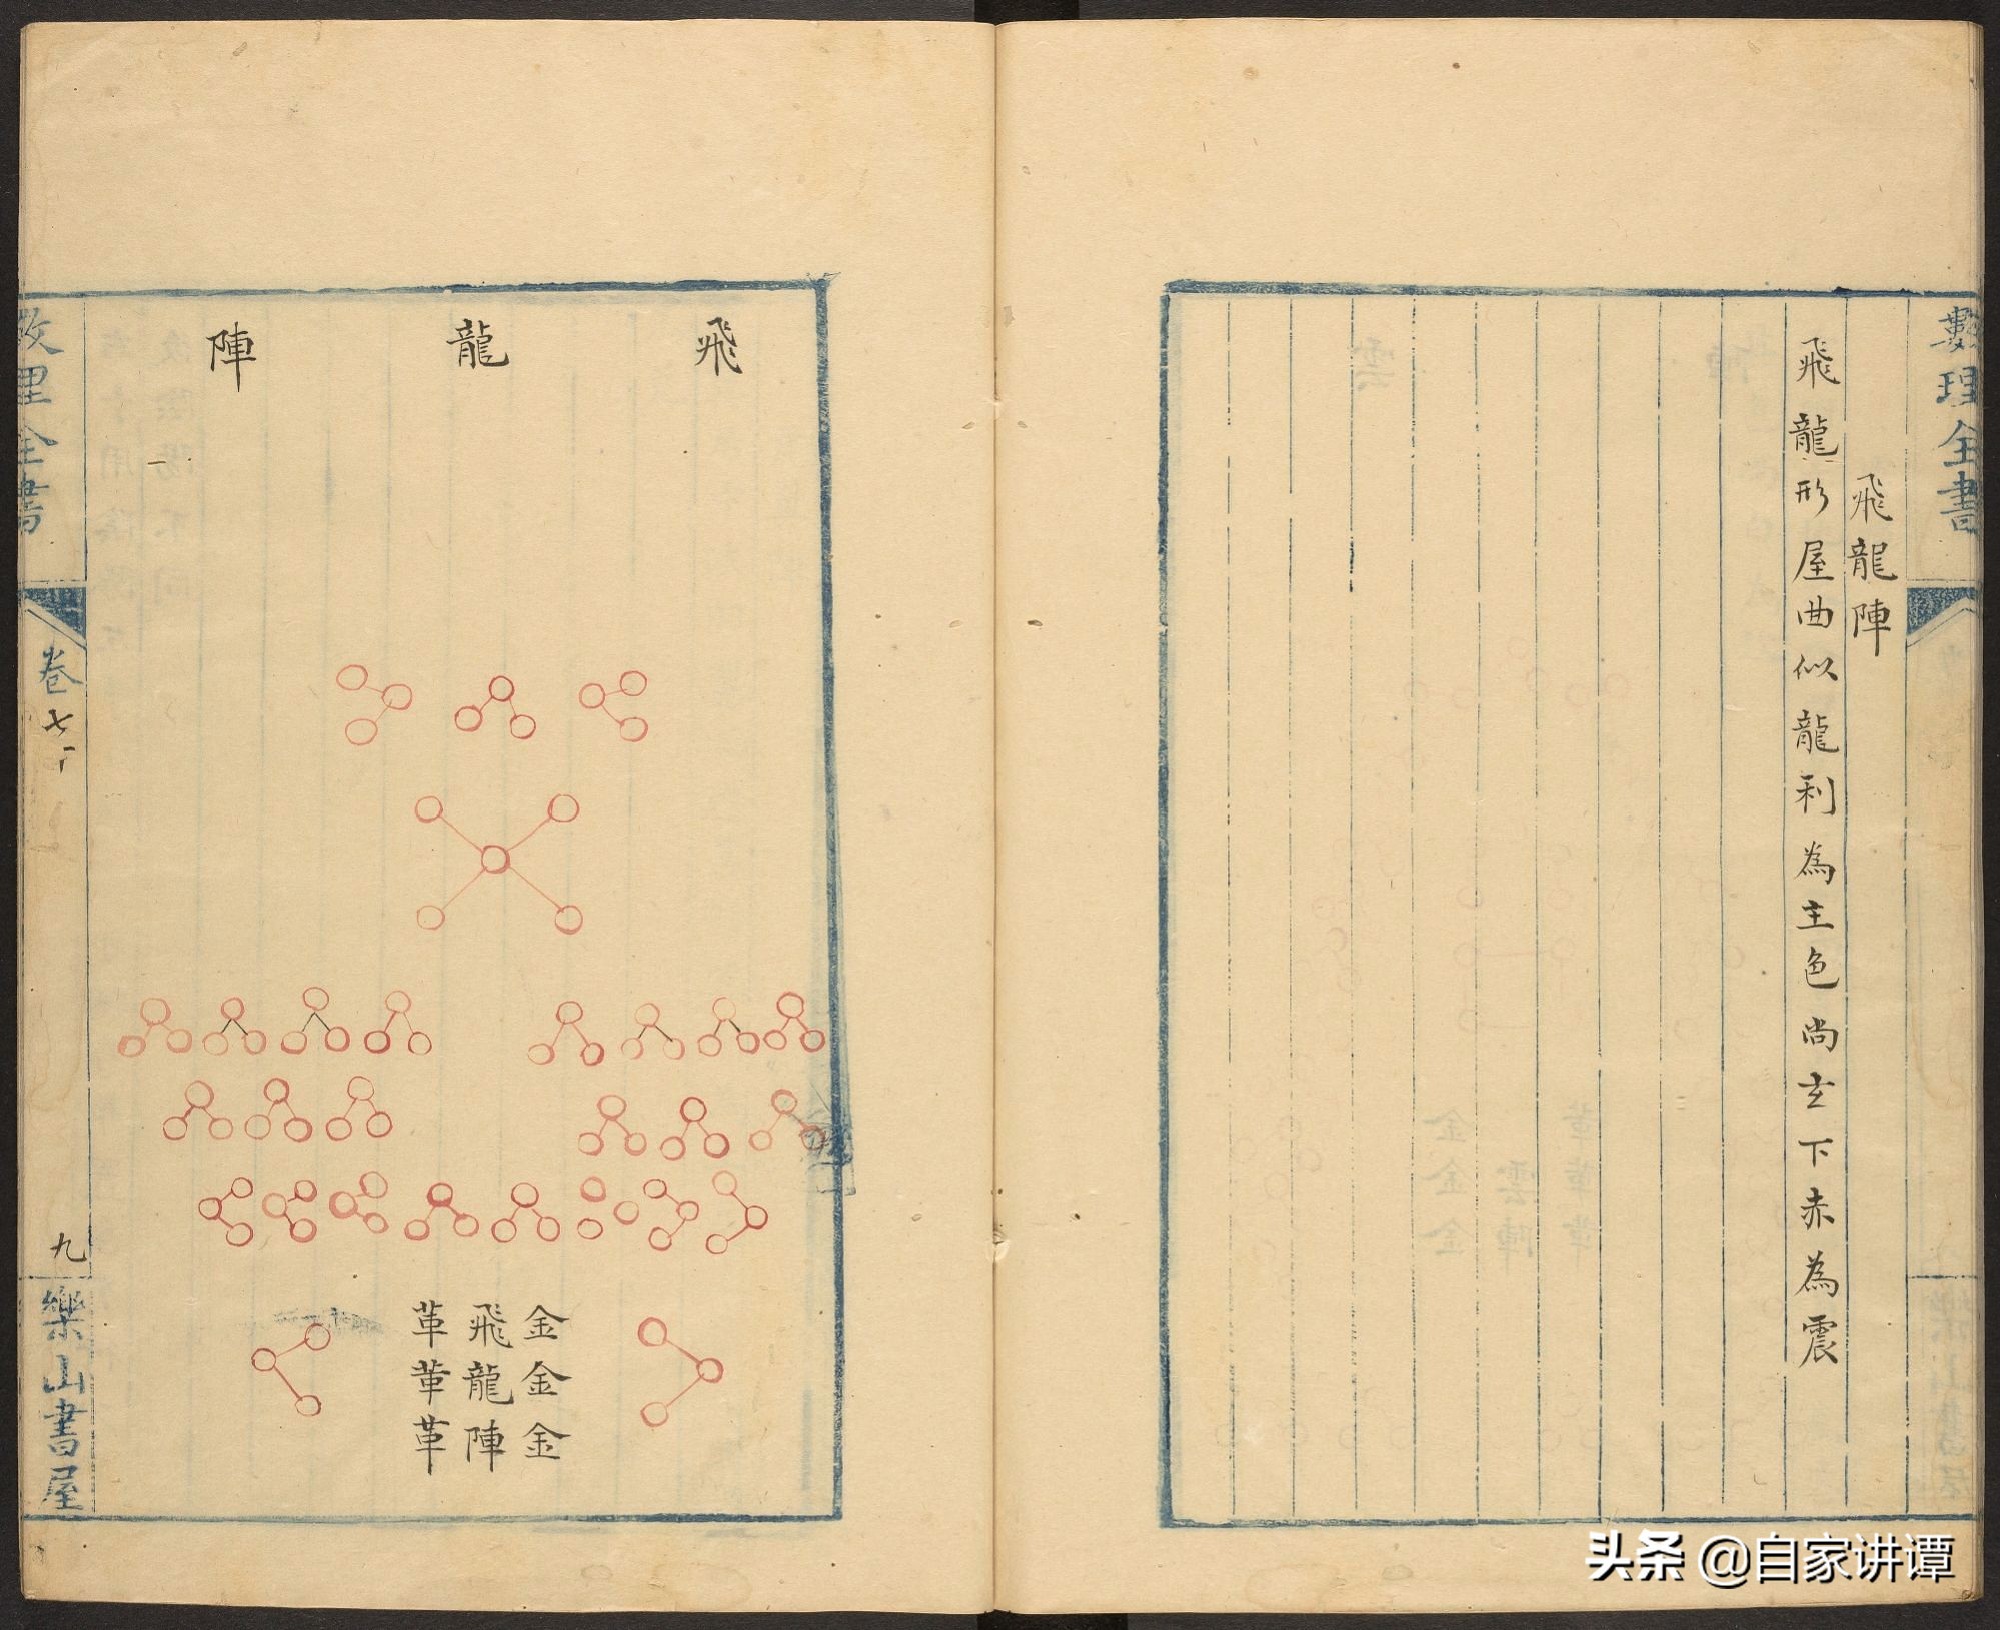 數理全書
飛龍陣
飛龍形屋曲似龍利為主色尚玄下赤為震
飛龍陣
金金金
飛龍陣
革革革
數理全書
卷七
九
樂山書屋
头条 @自家讲谭